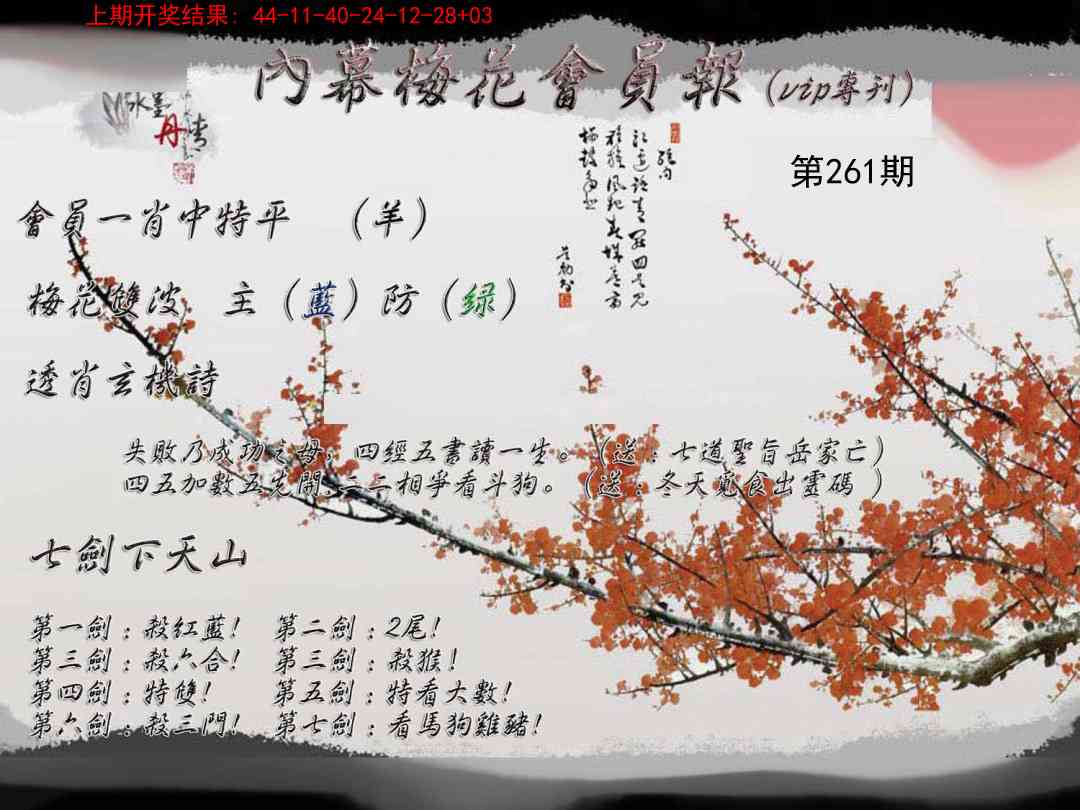 上期开奖结果: 44-11-40-24-12-28+03
內幕梅花會員報(vip專刊)
水墨
丹青
第261期
會員一肖中特平 (羊)
梅花雙波 主(藍)防(绿)
透肖玄機詩
失敗乃成功之母，四經五書讀一生。(送:七道聖旨岳家亡)
四五加數五先開,二二相爭看斗狗。(送:冬天覓食出靈碼 )
七劍下天山
第一劍:殺紅藍! 第二劍:2尾!
第三劍:殺六合! 第三劍:殺猴!
第四劍:特雙! 第五劍:特看大數!
第六劍:殺三門! 第七劍:看馬狗雞豬!